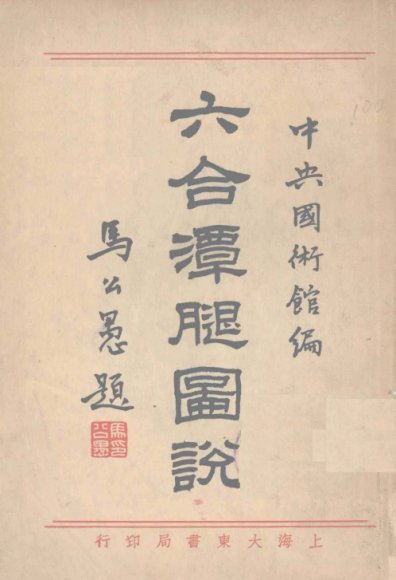 中央國術館編
六合潭腿圖說
馬公愚題
馬公愚印
上海大東書局印行